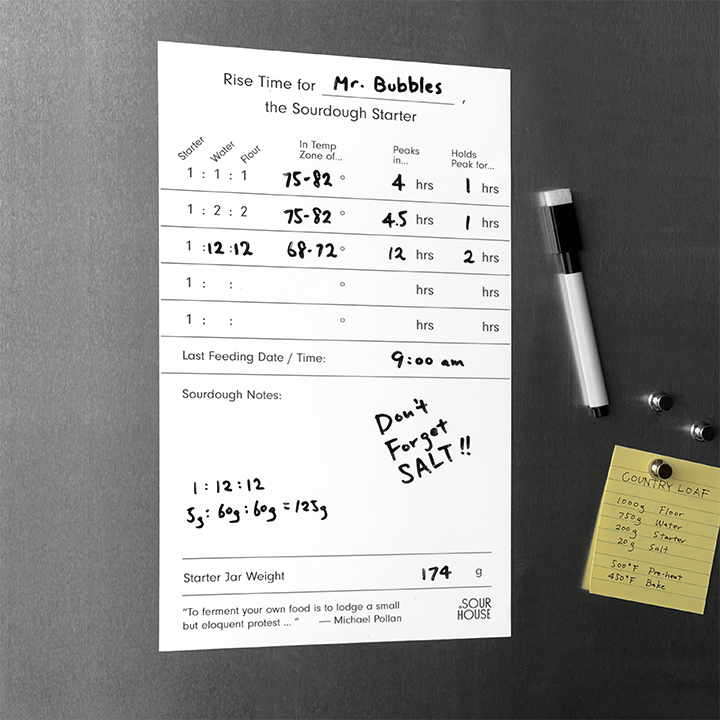 Rise Time for Mr. Bubbles,
the Sourdough Starter
Starter Water Flour In Temp Zone of... Peaks in... Holds Peak for...
1 : 1 : 1 75-82° 4 hrs 1 hrs
1 : 2 : 2 75-82° 4.5 hrs 1 hrs
1 : 12 : 12 68-72° 12 hrs 2 hrs
1 : : ° hrs hrs
1 : : ° hrs hrs
Last Feeding Date / Time: 9:00 am
Sourdough Notes:
Don't
Forget
SALT!!
1 : 12 : 12
5g : 60g : 60g = 125g
Starter Jar Weight 174 g
"To ferment your own food is to lodge a small
but eloquent protest ... " — Michael Pollan
SOUR
HOUSE
COUNTRY LOAF
1000g Flour
750g Water
200g Starter
20g Salt
500°F Pre-heat
450°F Bake